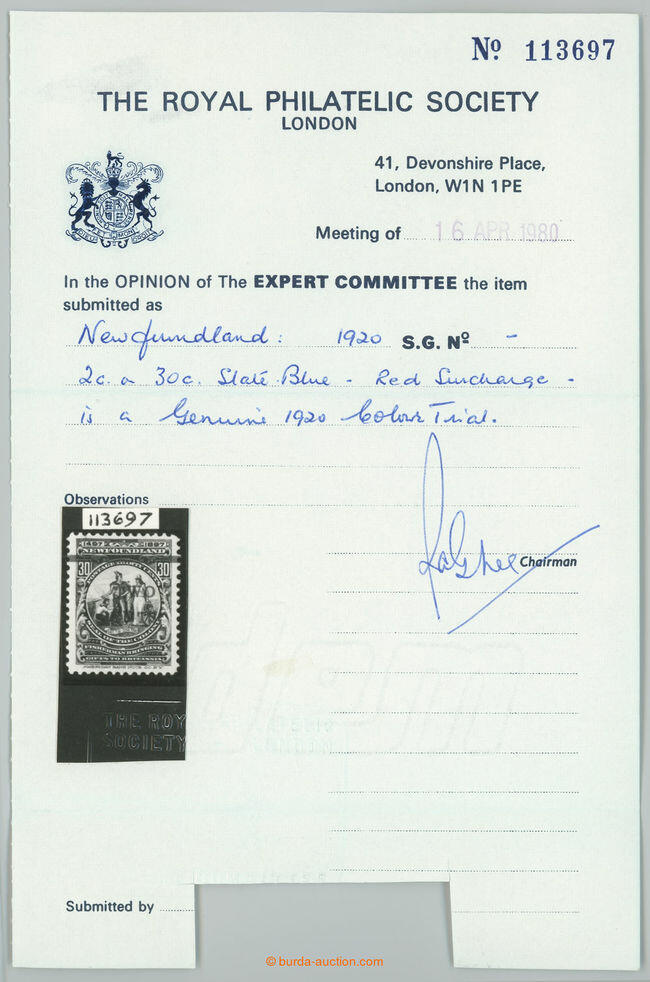 Nº 113697
THE ROYAL PHILATELIC SOCIETY
LONDON
41, Devonshire Place,
London, W1N 1PE
Meeting of 16 APR 1980
In the OPINION of The EXPERT COMMITTEE the item
submitted as
Newfoundland: 1920 S.G. Nº -
2c. on 30c. Slate-Blue - Red Surcharge -
is a Genuine 1920 Colour Trial.
Observations
113697
1497 1897
NEWFOUNDLAND
30 30
FISHERMAN BRINGING
GIFTS TO BRITANNIA
THE ROY
SOCIETY
Chairman
Submitted by
© burda-auction.com